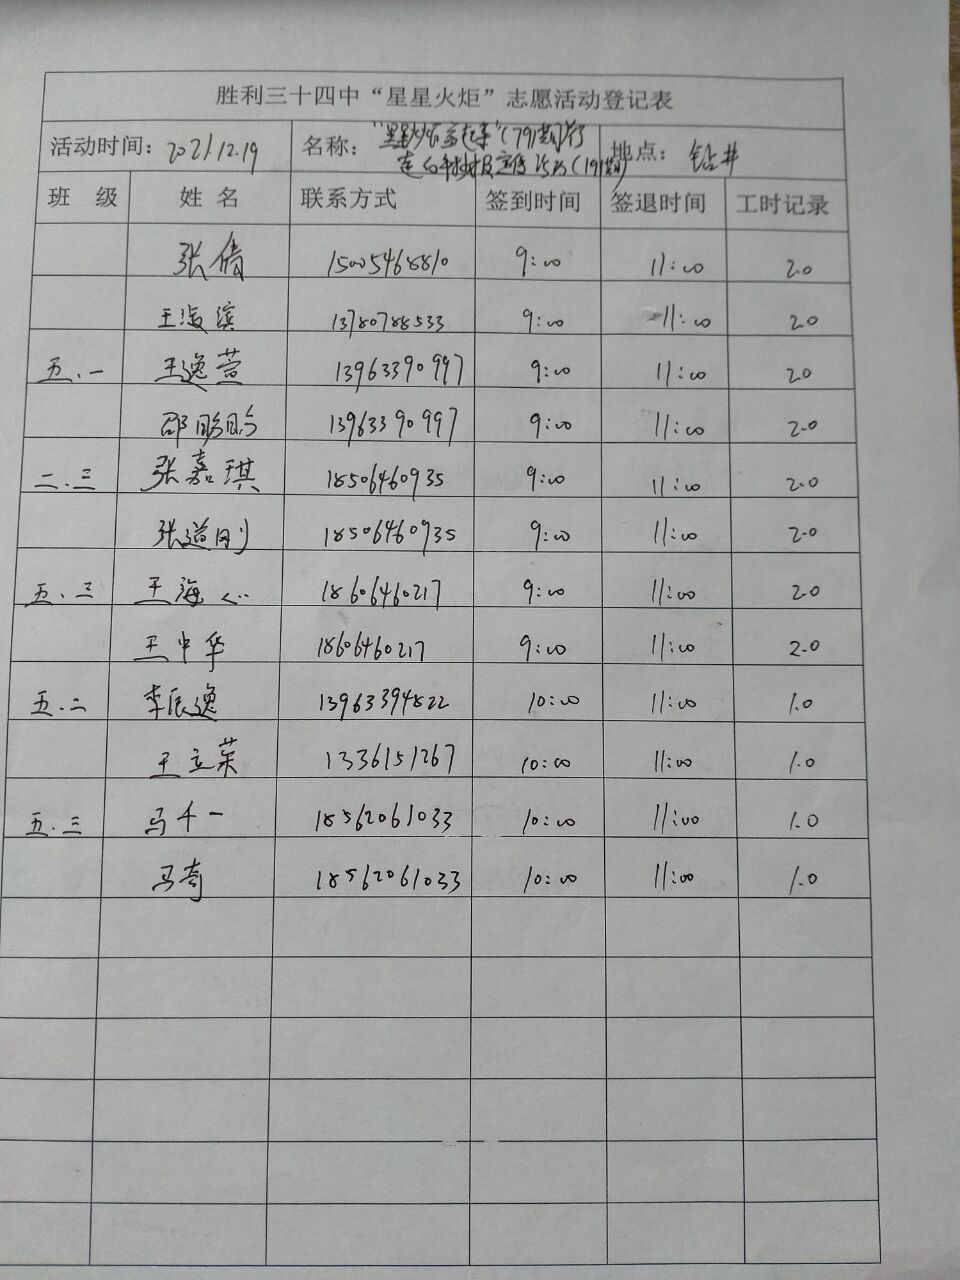 胜利三十四中“星星火炬”志愿活动登记表
活动时间：2021.12.19 名称： 地点：钻井
班 级 姓 名 联系方式 签到时间 签退时间 工时记录
张倩 15005468810 9:00 11:00 2.0
王海滨 13780788533 9:00 11:00 2.0
五.一 王逸萱 13963390997 9:00 11:00 2.0
邵 13963390997 9:00 11:00 2.0
二.三 张嘉琪 18506460935 9:00 11:00 2.0
张道刚 18506460935 9:00 11:00 2.0
五.三 王海 18606460217 9:00 11:00 2.0
王中华 18606460217 9:00 11:00 2.0
五.二 李辰逸 13963394822 10:00 11:00 1.0
王立荣 1336151267 10:00 11:00 1.0
五.三 马千一 18562061033 10:00 11:00 1.0
马奇 18562061033 10:00 11:00 1.0